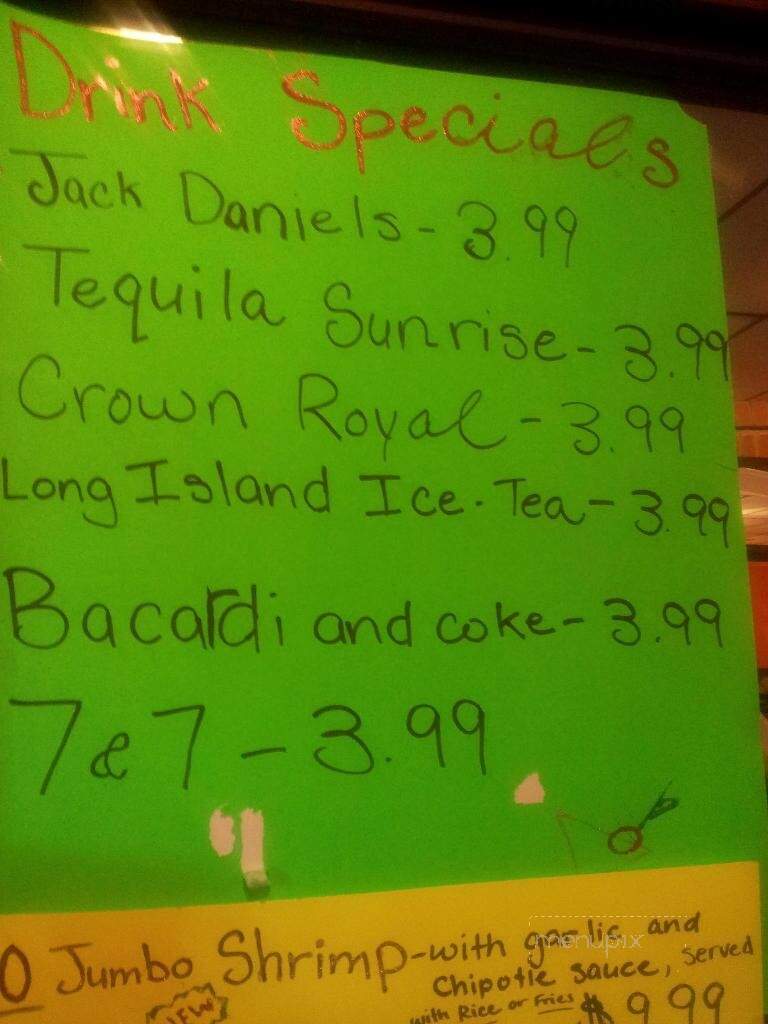 Drink Specials
Jack Daniels - 3.99
Tequila Sunrise - 3.99
Crown Royal - 3.99
Long Island Ice. Tea - 3.99
Bacardi and coke - 3.99
7 & 7 - 3.99
0 Jumbo Shrimp - with garlic and
Chipotle sauce, served
with Rice or Fries $9.99
NEW
menupix